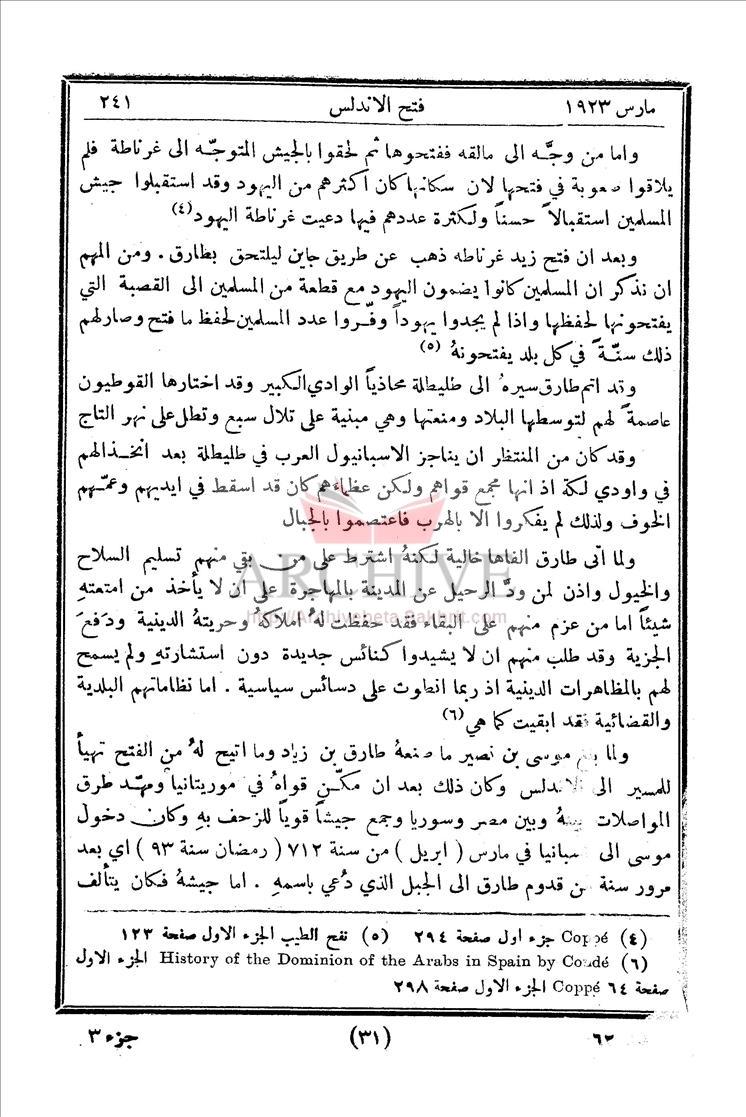 مارس ١٩٢٣ فتح الاندلس ٢٤١
واما من وجَّه الى مالقه ففتحوها ثم لحقوا بالجيش المتوجّه الى غرناطة فلم
يلاقوا صعوبة في فتحها لان سكانها كان اكثرهم من اليهود وقد استقبلوا جيش
المسلمين استقبالاً حسناً ولكثرة عددهم فيها دعيت غرناطة اليهود(٤)
وبعد ان فتح زيد غرناطه ذهب عن طريق جاين ليلتحق بطارق . ومن المهم
ان نذكر ان المسلمين كانوا يضمون اليهود مع قطعة من المسلمين الى القصبة التي
يفتحونها لحفظها واذا لم يجدوا يهوداً وفّروا عدد المسلمين لحفظ ما فتح وصار لهم
ذلك سنّةً في كل بلد يفتحونهُ (٥)
وقد اتم طارق سيرهُ الى طليطلة محاذياً الوادي الكبير وقد اختارها القوطيون
عاصمةً لهم لتوسطها البلاد ومنعتها وهي مبنية على تلال سبع وتطل على نهر التاج
وقد كان من المنتظر ان يناجز الاسبانيول العرب في طليطلة بعد انخذالهم
في وادي لكة اذ انها مجمع قواهم ولكن عظماءهم كان قد اسقط في ايديهم وعمّهم
الخوف ولذلك لم يفكروا الا بالهرب فاعتصموا بالجبال
ولما اتى طارق الفاها خالية لكنهُ اشترط على من بقي منهم تسليم السلاح
والخيول واذن لمن ودَّ الرحيل عن المدينة بالمهاجرة على ان لا يأخذ من امتعته
شيئاً اما من عزم منهم على البقاء فقد حفظت لهُ املاكهُ وحريتهُ الدينية ودَفعَ
الجزية وقد طلب منهم ان لا يشيدوا كنائس جديدة دون استشارتهِ ولم يسمح
لهم بالمظاهرات الدينية اذ ربما انطوت على دسائس سياسية . اما نظاماتهم البلدية
والقضائية فقد ابقيت كما هي(٦)
ولما بلغ موسى بن نصير ما صنعهُ طارق بن زياد وما اتيح لهُ من الفتح تهيأ
للمسير الى الاندلس وكان ذلك بعد ان مكّن قواهُ في موريتانيا ومهّد طرق
المواصلات بينهُ وبين مصر وسوريا وجمع جيشاً قوياً للزحف بهِ وكان دخول
موسى الى اسبانيا في مارس ( ابريل ) من سنة ٧١٢ ( رمضان سنة ٩٣ ) اي بعد
مرور سنة من قدوم طارق الى الجبل الذي دُعي باسمهِ . اما جيشهُ فكان يتألف
(٤) Coppé جزء اول صفحة ٢٩٤ (٥) نفح الطيب الجزء الاول صفحة ١٢٣
(٦) History of the Dominion of the Arabs in Spain by Condé الجزء الاول
صفحة ٦٤ Coppé الجزء الاول صفحة ٢٩٨
جزء ٣ (٣١)
ARCHIVE
http://Archivebeta.Sakhrit.com